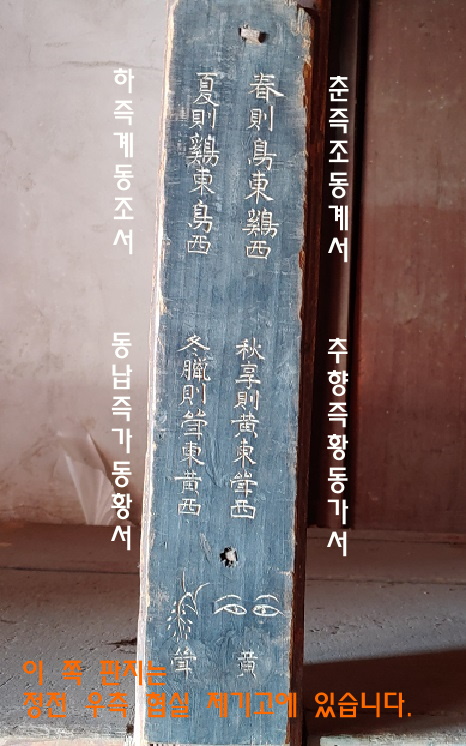 춘즉조동계서
春則鳥東鷄西
夏則鷄東鳥西
하즉계동조서
추향즉황동가서
秋享則黃東斝西
冬臘則斝東黃西
동납즉가동황서
黃
斝
이 쪽 판지는
정전 우측 협실 제기고에 있습니다.